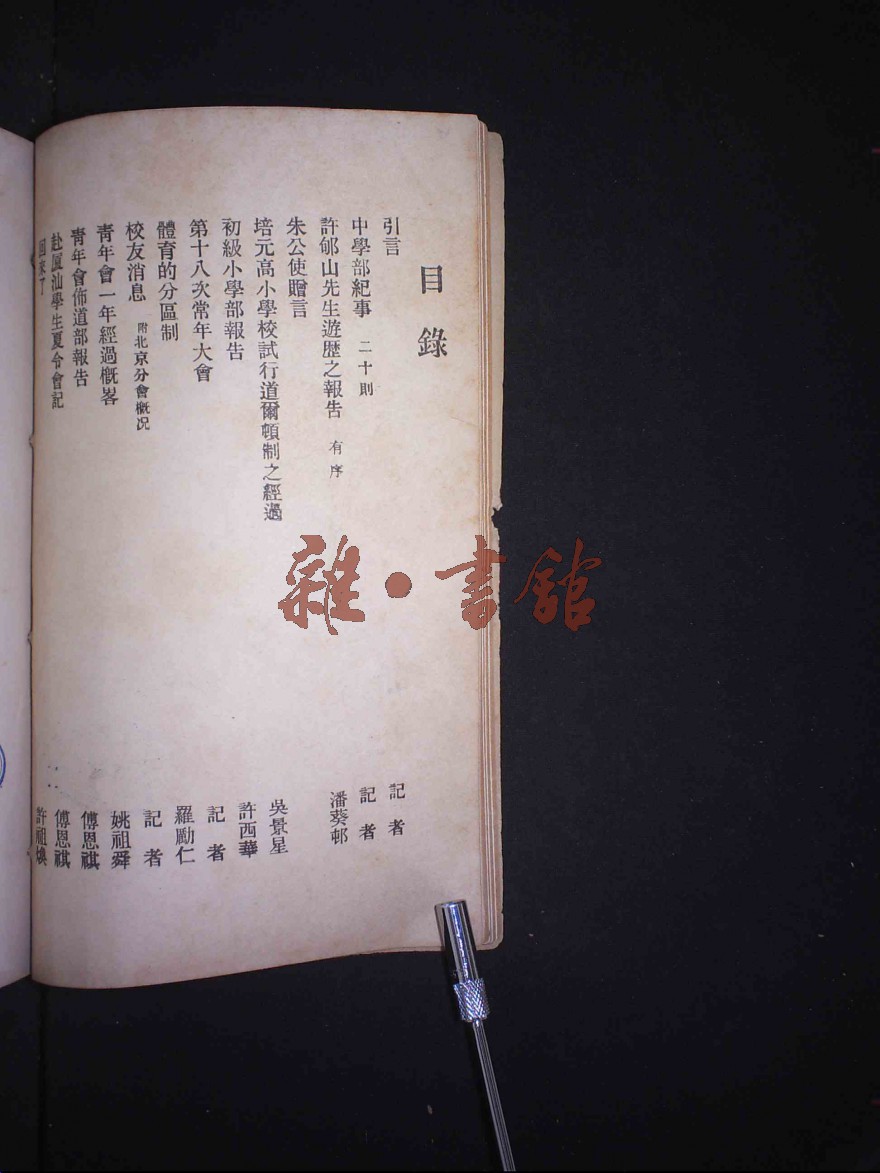 目錄
引言 記者
中學部紀事 二十則 記者
許邮山先生遊歷之報告 有序 潘葵邨
朱公使贈言
培元高小學校試行道爾頓制之經過 吳景星
初級小學部報告 許西華
第十八次常年大會 記者
體育的分區制 羅勵仁
校友消息 附北京分會概况 記者
靑年會一年經過概畧 姚祖舜
靑年會佈道部報告 傅恩祺
赴厦汕學生夏令會記 傅恩祺
回來了 許祖煥
雜·書館